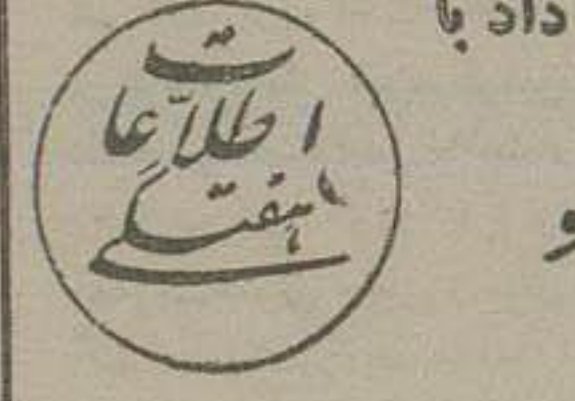 داد با
اطلاعات
هفتگی
و